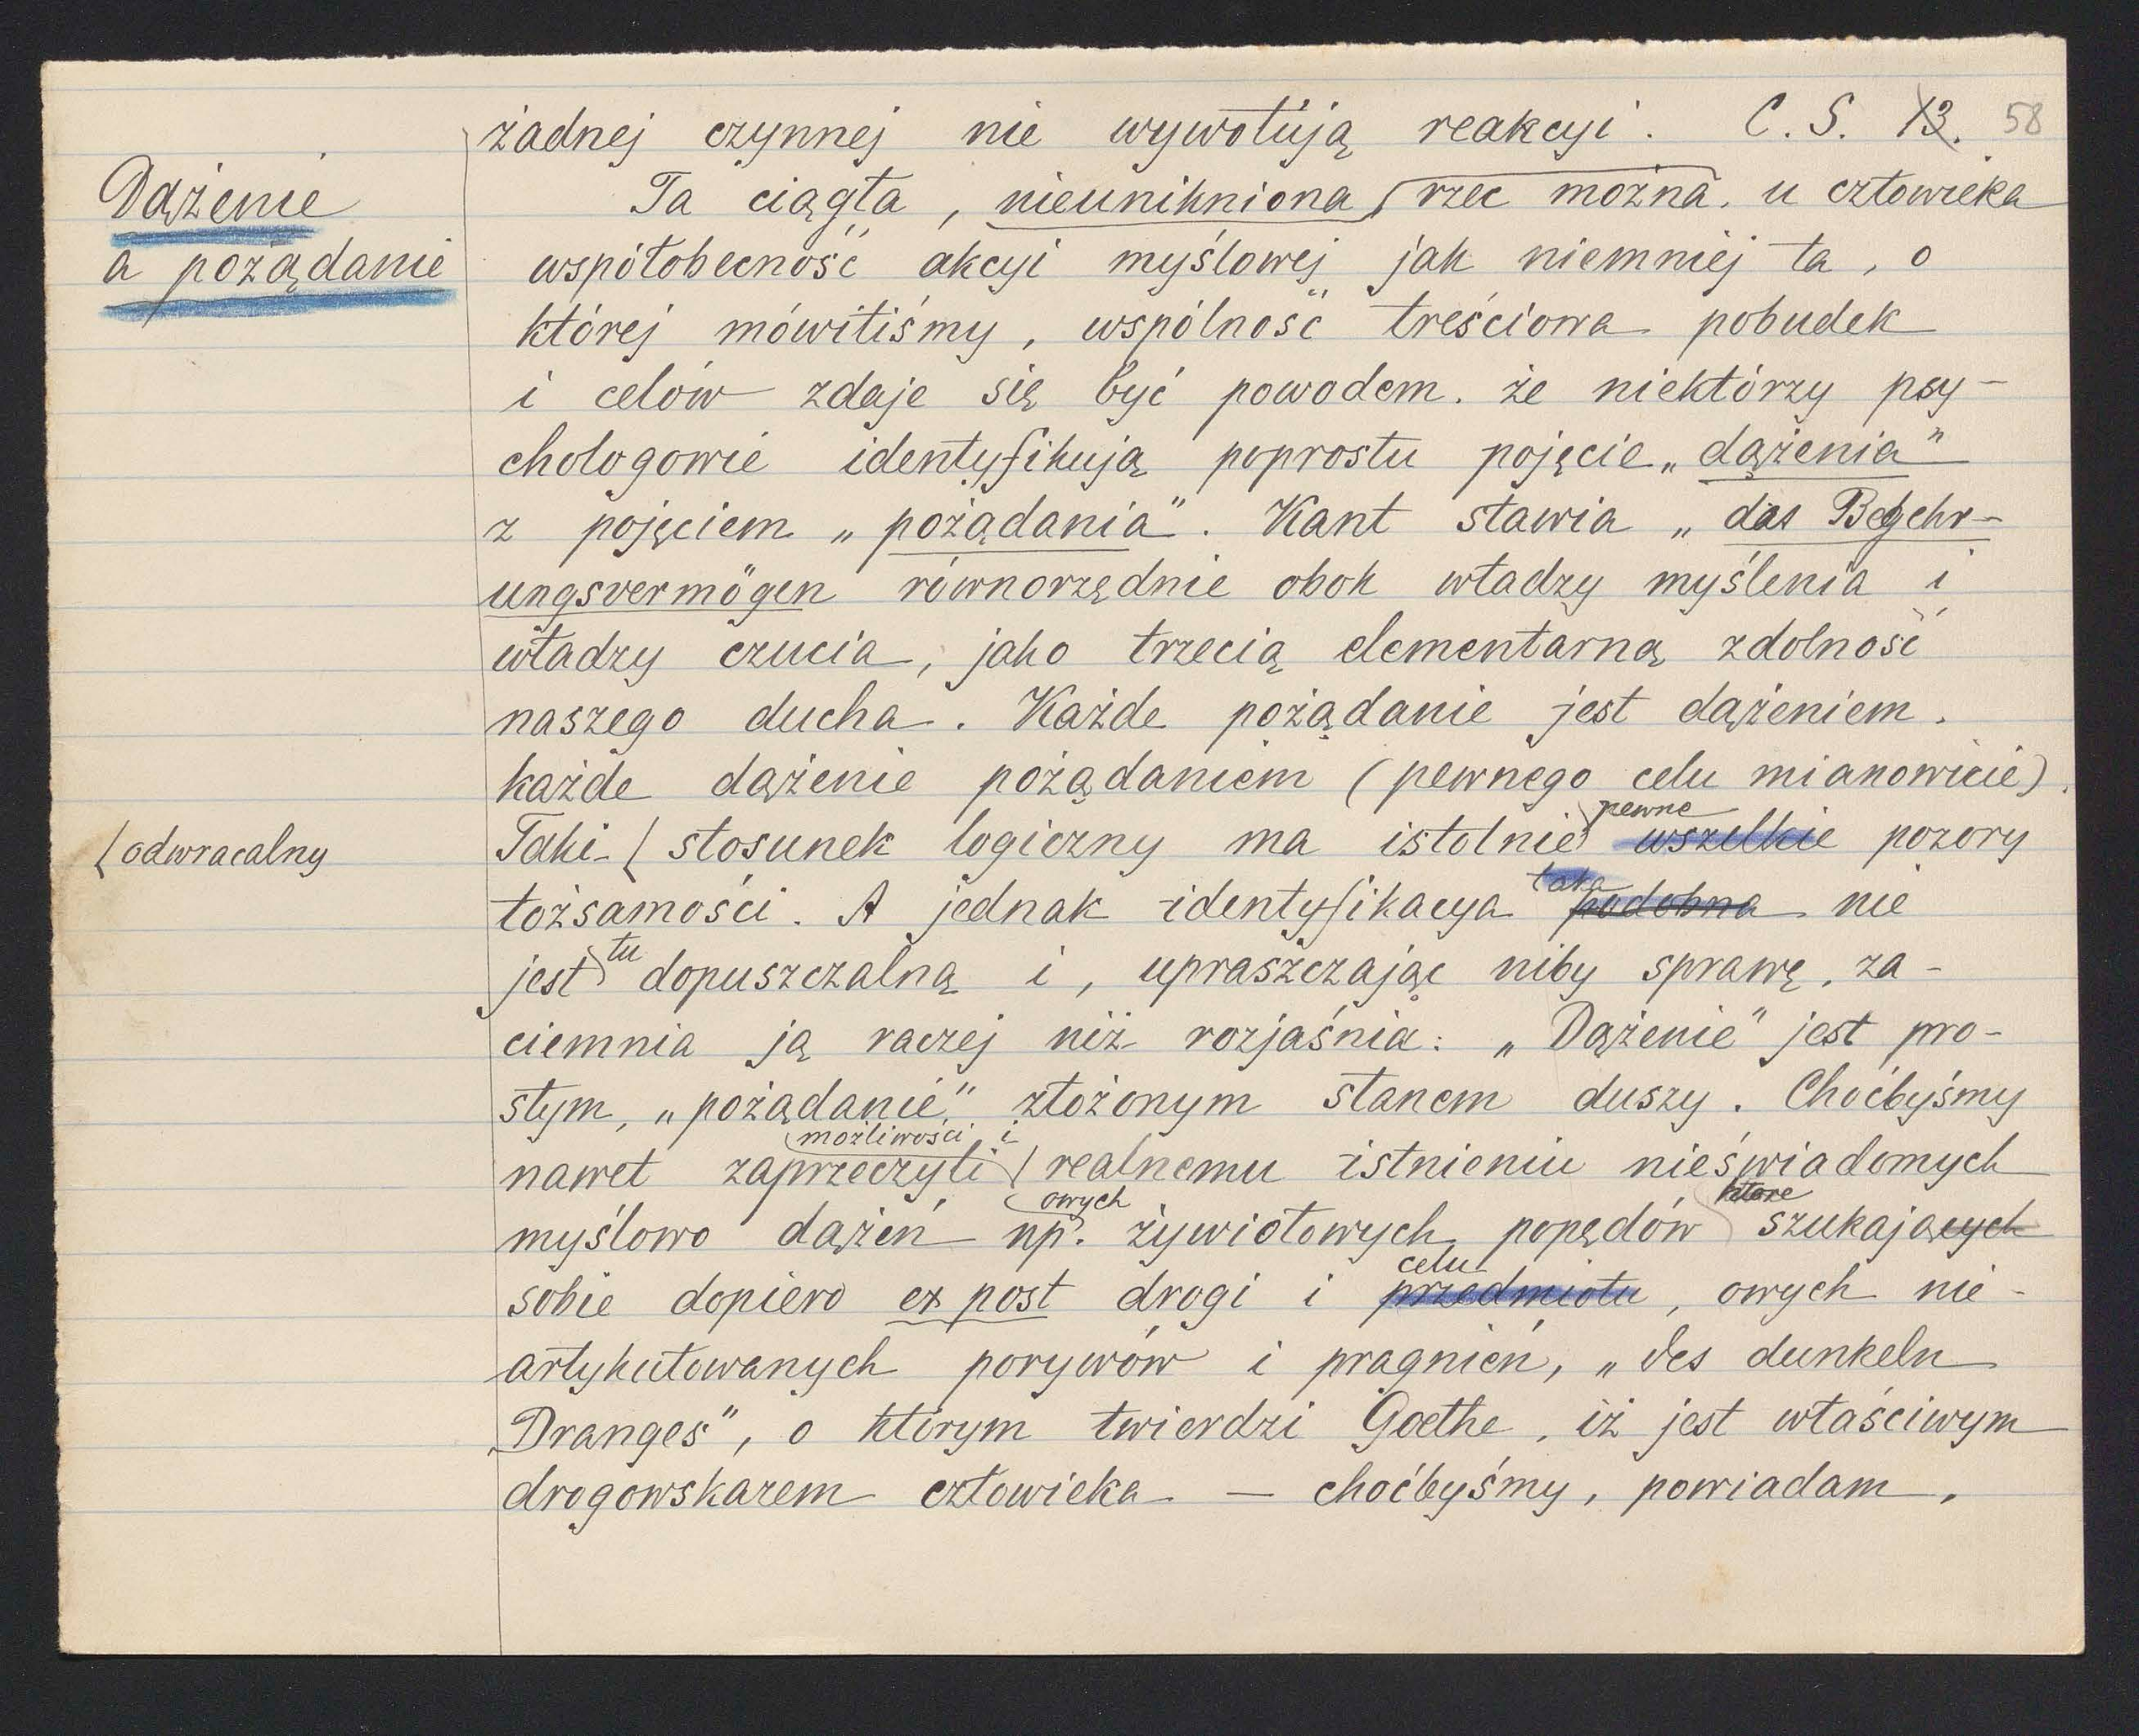 żadnej czynnej nie wywołują reakcyi. C. S. 13. 58
Dążenie
a pożądanie
Ta ciągła, nieunikniona, rzec można, u człowieka
współobecność akcyi myślowej jak niemniej ta, o
której mówiliśmy, wspólność treściowa pobudek
i celów zdaje się być powodem, że niektórzy psy-
chologowie identyfikują poprostu pojęcie „dążenia"
z pojęciem „pożądania". Kant stawia „das Begehr-
ungsvermögen równorzędnie obok władzy myślenia i
władzy czucia, jako trzecią elementarną zdolność
naszego ducha. Każde pożądanie jest dążeniem,
każde dążenie pożądaniem (pewnego celu mianowicie).
pewne
(odwracalny
Taki ( stosunek logiczny ma istotnie wszelkie pozory
taka
tożsamości. A jednak identyfikacya podobna nie
tu
jest dopuszczalną i, upraszczając niby sprawę, za-
ciemnia ją raczej niż rozjaśnia: „Dążenie" jest pro-
stym, „pożądanie" złożonym stanem duszy. Choćbyśmy
możliwości i
nawet zaprzeczyli ( realnemu istnieniu nieświadomych
owych które
myślowo dążeń np. żywiołowych popędów szukających
celu
sobie dopiero ex post drogi i przedmiotu, owych nie-
artykułowanych porywów i pragnień, „des dunkeln
Dranges", o którym twierdzi Goethe, iż jest właściwym
drogowskazem człowieka — choćbyśmy, powiadam,